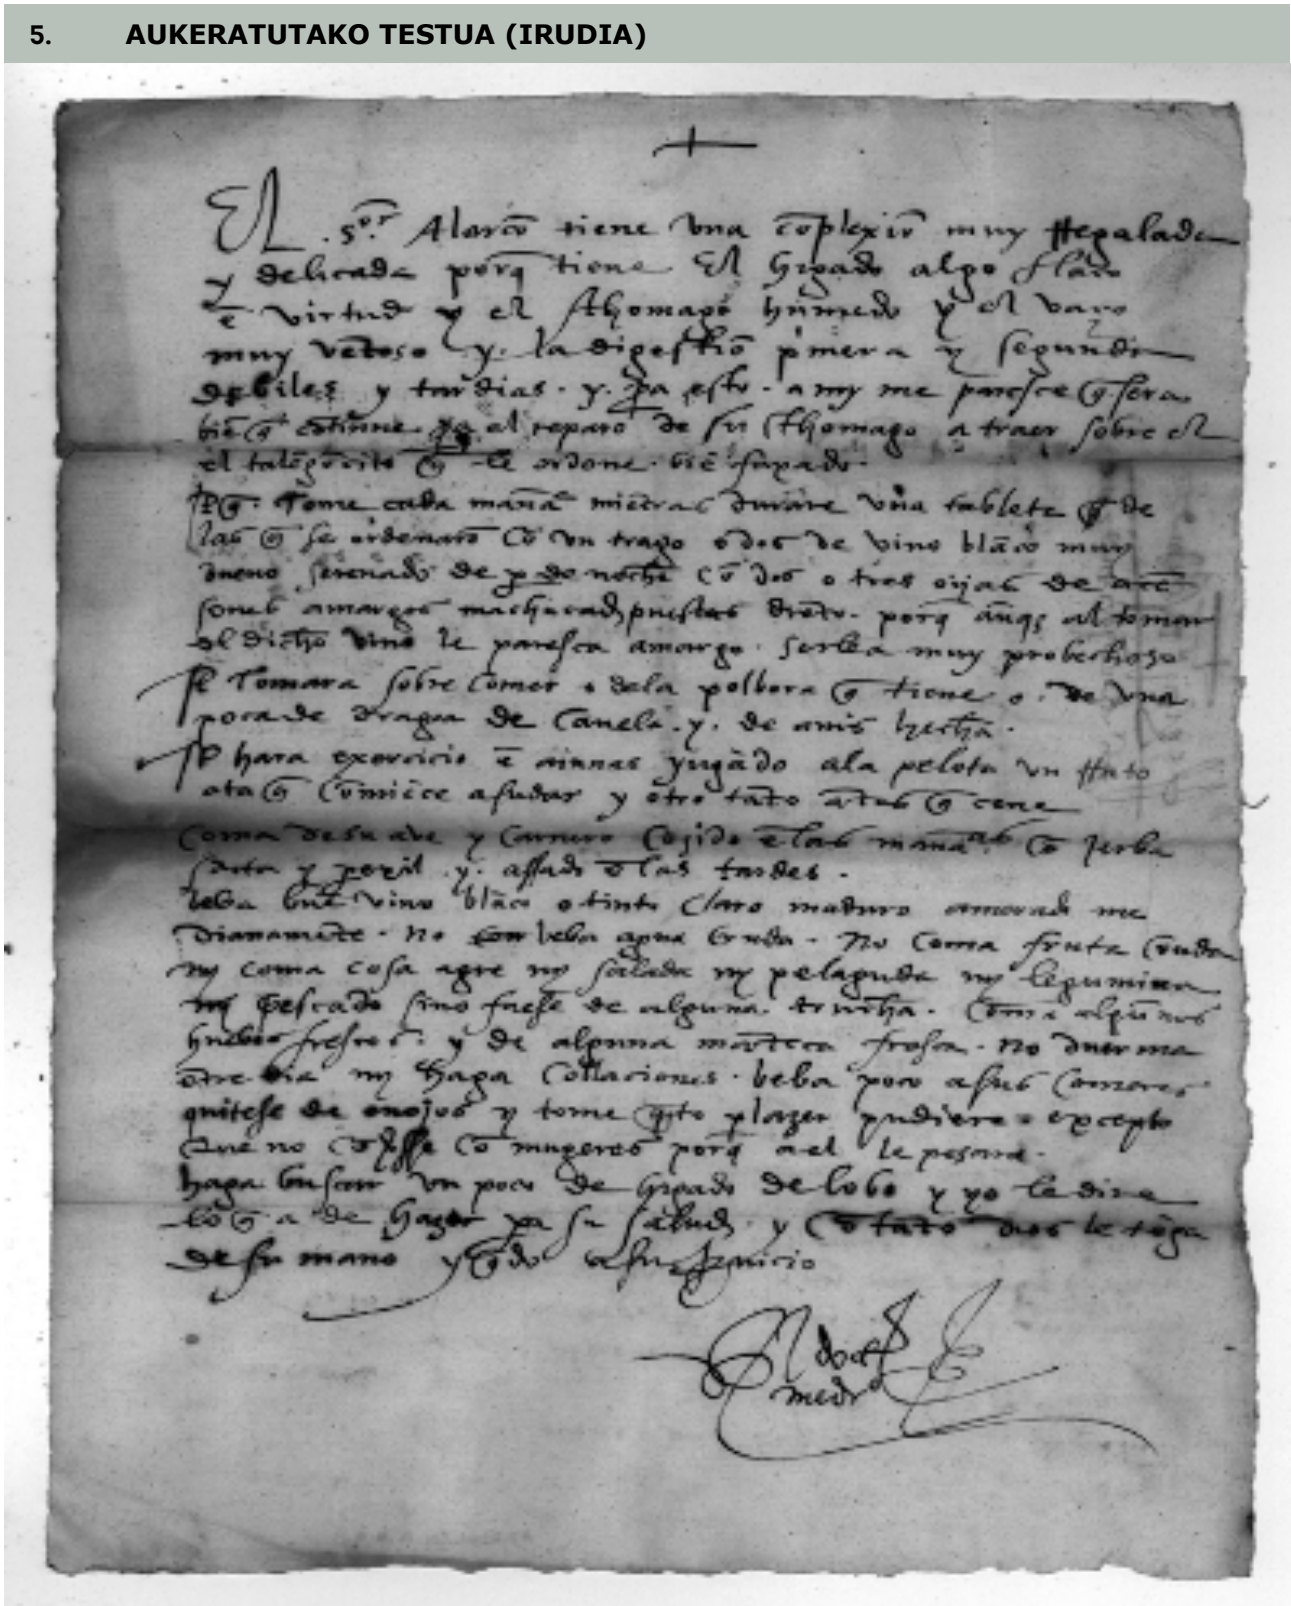 5. AUKERATUTAKO TESTUA (IRUDIA)
El . sor. Alarcō tiene vna cōplexiō muy rregalada
y delicada porq̄ tiene El hígado algo flaco
ē virtud y el sthomago húmedo y el vaço
muy vētoso y. la digestiō pimera y segunda
debiles y tardias. y. pa esto. a my me paresce q̄ sera
biē q̄ cōtinue pa al reparo de su sthomago a traer sobre el
el talēgōcito q̄ le ordone. biē
q̄. Tome cada mañāa miētras durare vna tableta q̄ de
las q̄ se ordenarō cō vn trago o dos de vino blāco muy
bueno serenado de noche cō dos o tres ojas de acē
sones amargos machucados puestas dētro. porq̄ āunq̄ al tomar
el dicho vino le paresca amargo. serlea muy probechoso
Tomara sobre comer o dela polbora q̄ tiene o. de vna
poca de dragea de Canela. y. de anis hecha.
hara exercicio ē aiunas yugādo ala pelota vn rrato
ata q̄ Comiēce asudar y otro tāto ātes q̄ cene
coma desu ave y Carnero Cojido ēlas mañanas Cō Jerba
sāta y perxil. y. assado ēlas tardes.
beba buē vino blāco o tinto claro maduro amorado me
dianamēte. No beba agua cruda. No coma fruta cruda
ny coma cosa agre ny salada ny pelaguda ny legumina
ny pescado sino fuese de alguna. trucha. Coma algunos
huebos frescos. y de alguna māteca fresca. No duerma
ētre dia ny haga Collaciones. beba poco asus Comeres
quitese de enojos y tome qto plazer pudiere o excepto
Que no cō mugeres porq̄ ael le pesara.
haga buscar vn poco de hígado de lobo y yo le dire
lo q̄ a de hazer pa su salud. y cō tāto dios le tēga
de su mano y q̄do asu seruicio
El doctor